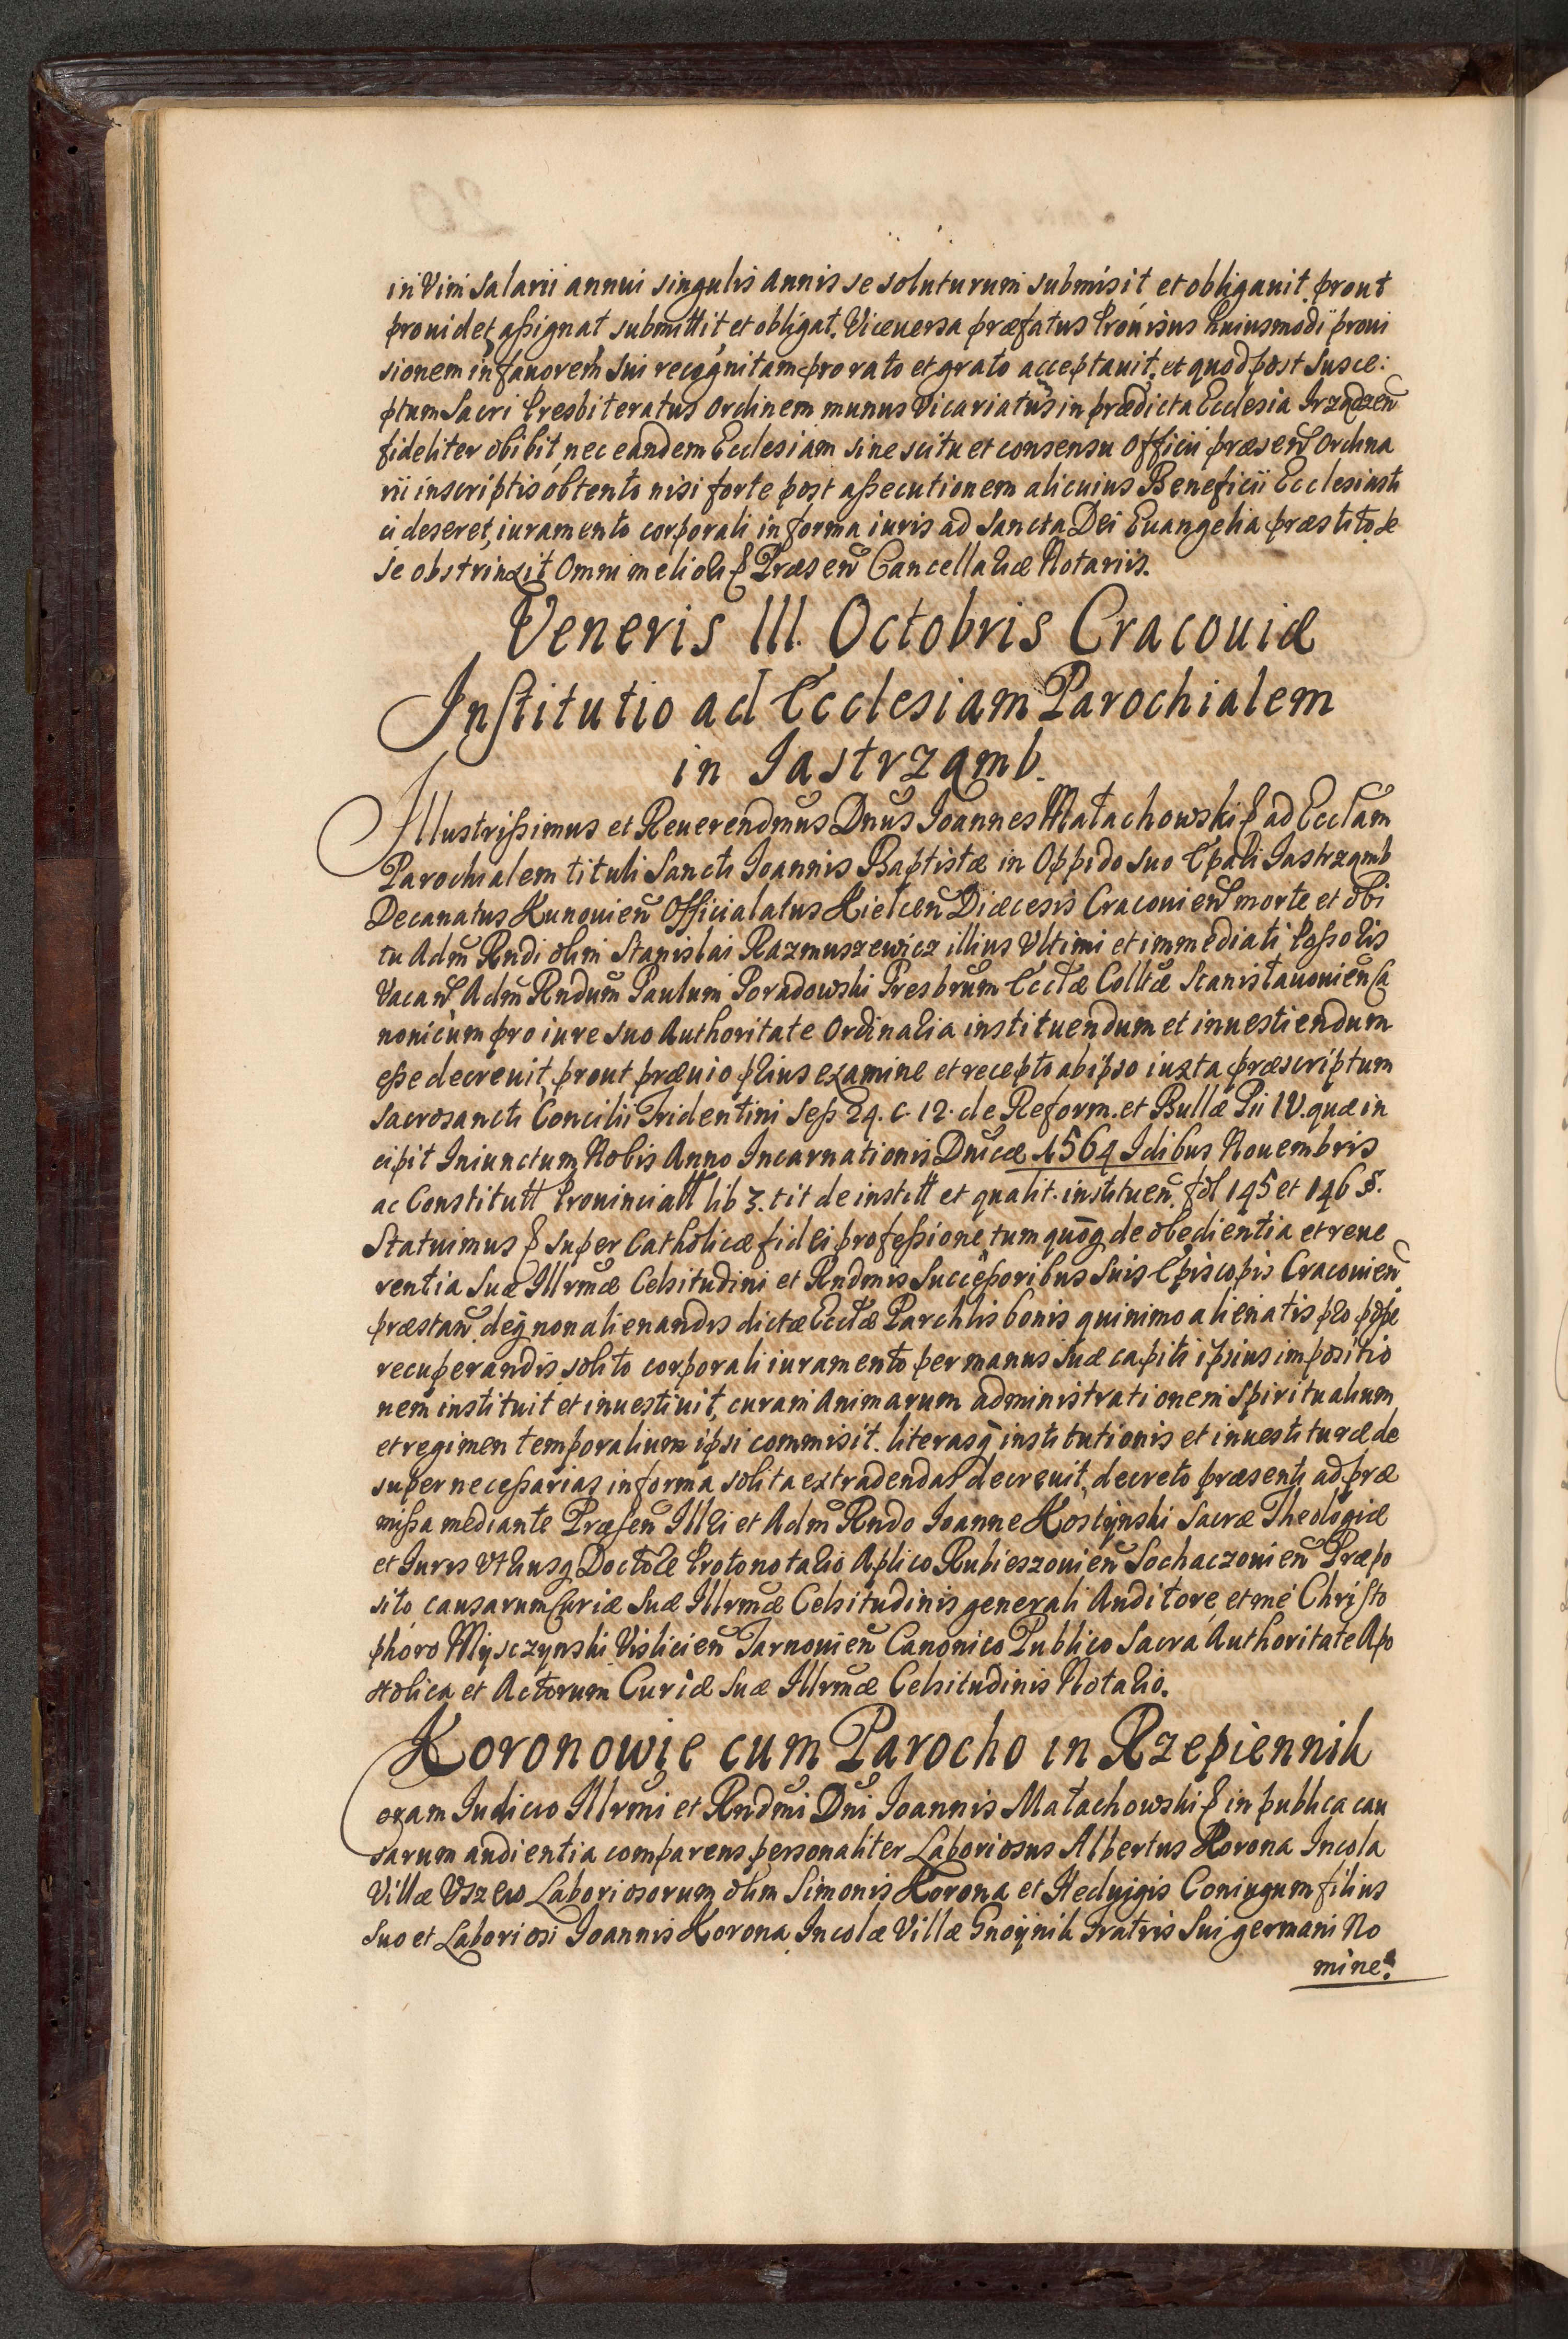 in Vim Salarii annui singulis Annis se soluturum submisit et obligauit prout
prouidet assignat submittit et obligat. Viceuersa præfatus Prouisus huiusmodi proui
sionem in fauorem sui recognitam pro rato et grato acceptauit, et quod post susce:
ptum Sacri Presbiteratus Ordinem munus Vicariatus in prædicta Ecclesia
fideliter obibit, nec eandem Ecclesiam sine scitu et consensu Officii præsen Ordina
rii in scriptis obtento nisi forte post assecutionem alicuius Beneficii Ecclesiasti
ci deseret, iuramento corporali in forma iuris ad Sancta Dei Euangelia præstito se
se obstrinxit Omni meliori Præsen Cancellariæ Notariis.
Veneris III. Octobris Cracouiæ
Institutio ad Ecclesiam Parochialem
in Jastrząmb.
Illustrissimus et Reuerendmus Dnus Joannes Małachowski ad Ecclam
Parochialem tituli Sancti Joannis Baptistæ in Oppido suo Epali Jastrząmb
Decanatus Kunouien Officialatus Kielcen Diæcesis Cracouien morte et obi
tu Adm Rndi olim Stanislai Razmuszewicz illius Vltimi et immediati Possoris
Vacan Adm Rndum Paulum Poradowski Presbrum Ecclæ Colltæ Stanislauouien Ca
nonicum pro iure suo Authoritate Ordinaria instituendum et inuestiendum
esse decreuit, prout præuio prius examine et recepto ab ipso iuxta præscriptum
Sacrosancti Concilii Tridentini Sess 24. C. 12. de Reform. et Bullæ Pii IV. quæ in
cipit Iniunctum Nobis Anno Incarnationis Dnicæ 1564 Idibus Nouembris
ac Constitutt Prouinciall lib 3. tit de instit et qualit. instituen. fol 145 et 146 §.
Statuimus super Catholicæ fidei professione, tum quoq de obedientia et reue
rentia Suæ Illrmæ Celsitudini et Rndmis Successoribus Suis Episcopis Cracouien
præstan, deq non alienandis dictæ Ecclæ Parchlis bonis quinimo alienatis pro posse
recuperandis solito corporali iuramento per manus suæ capiti ipsius impositio
nem instituit et inuestiuit, curam Animarum administrationem Spiritualium
et regimen temporalium ipsi commisit. literasq institutionis et inuestituræ de
super necessarias in forma solita extradendas decreuit, decreto præsenti ad præ
missa mediante Præsen Illri et Adm Rndo Joanne Kostynski Sacræ Theologiæ
et Juris Vtriusq Doctore Protonotario Aplico Rubieszouien Sochaczouien Præpo
sito, causarum Curiæ Suæ Illrmæ Celsitudinis generali Auditore, et me Christo
phoro Myjsczynski Vislicien Tarnouien Canonico Publico Sacra Authoritate Apo
stolica et Actorum Curiæ Suæ Illrmæ Celsitudinis Notario.
Koronowie cum Parocho in Rzepiennik
Coram Judicio Illrmi et Rndmi Dni Joannis Małachowski in publica cau
sarum audientia comparens personaliter Laboriosus Albertus Korona Incola
Villæ Vszew Laboriosorum olim Simonis Korona et Heduigis Coniugum filius
Suo et Laboriosi Joannis Korona Incolæ Villæ Gnoynik Fratris Sui germani No
mine.